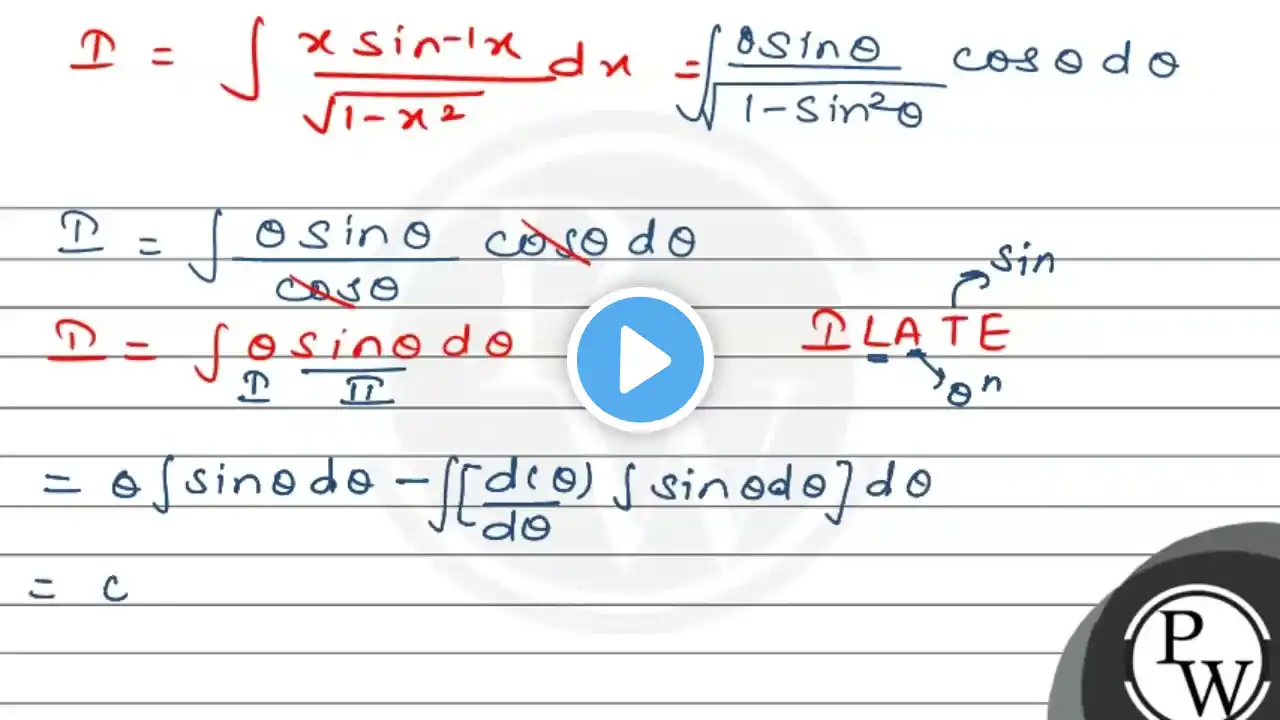 I = ∫ x sin-1x / √1-x² dx = ∫ θsinθ / √1-sin²θ cosθ dθ
I = ∫ θsinθ / cosθ cosθ dθ
sin
I = ∫ θ sinθ dθ
I LATE
I II
θⁿ
= θ∫sinθdθ - ∫[d(θ)/dθ ∫sinθdθ]dθ
= c
PW
PW